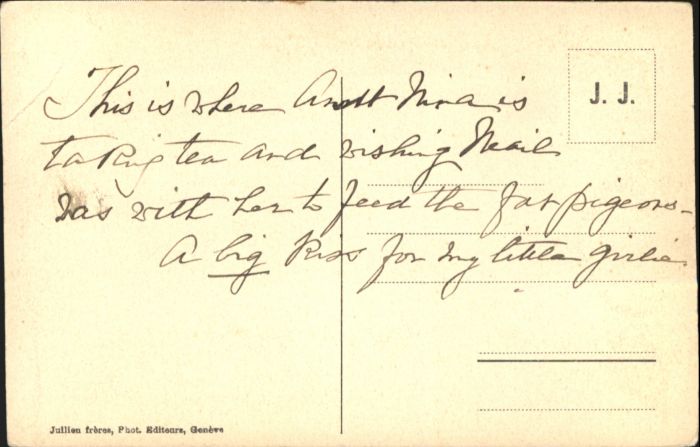 This is where Aunt Nina is
taking tea and wishing
was with her to feed the fat pigeons-
A big Kiss for my little girlie.
J. J.
Jullien frères, Phot. Editeurs, Genève